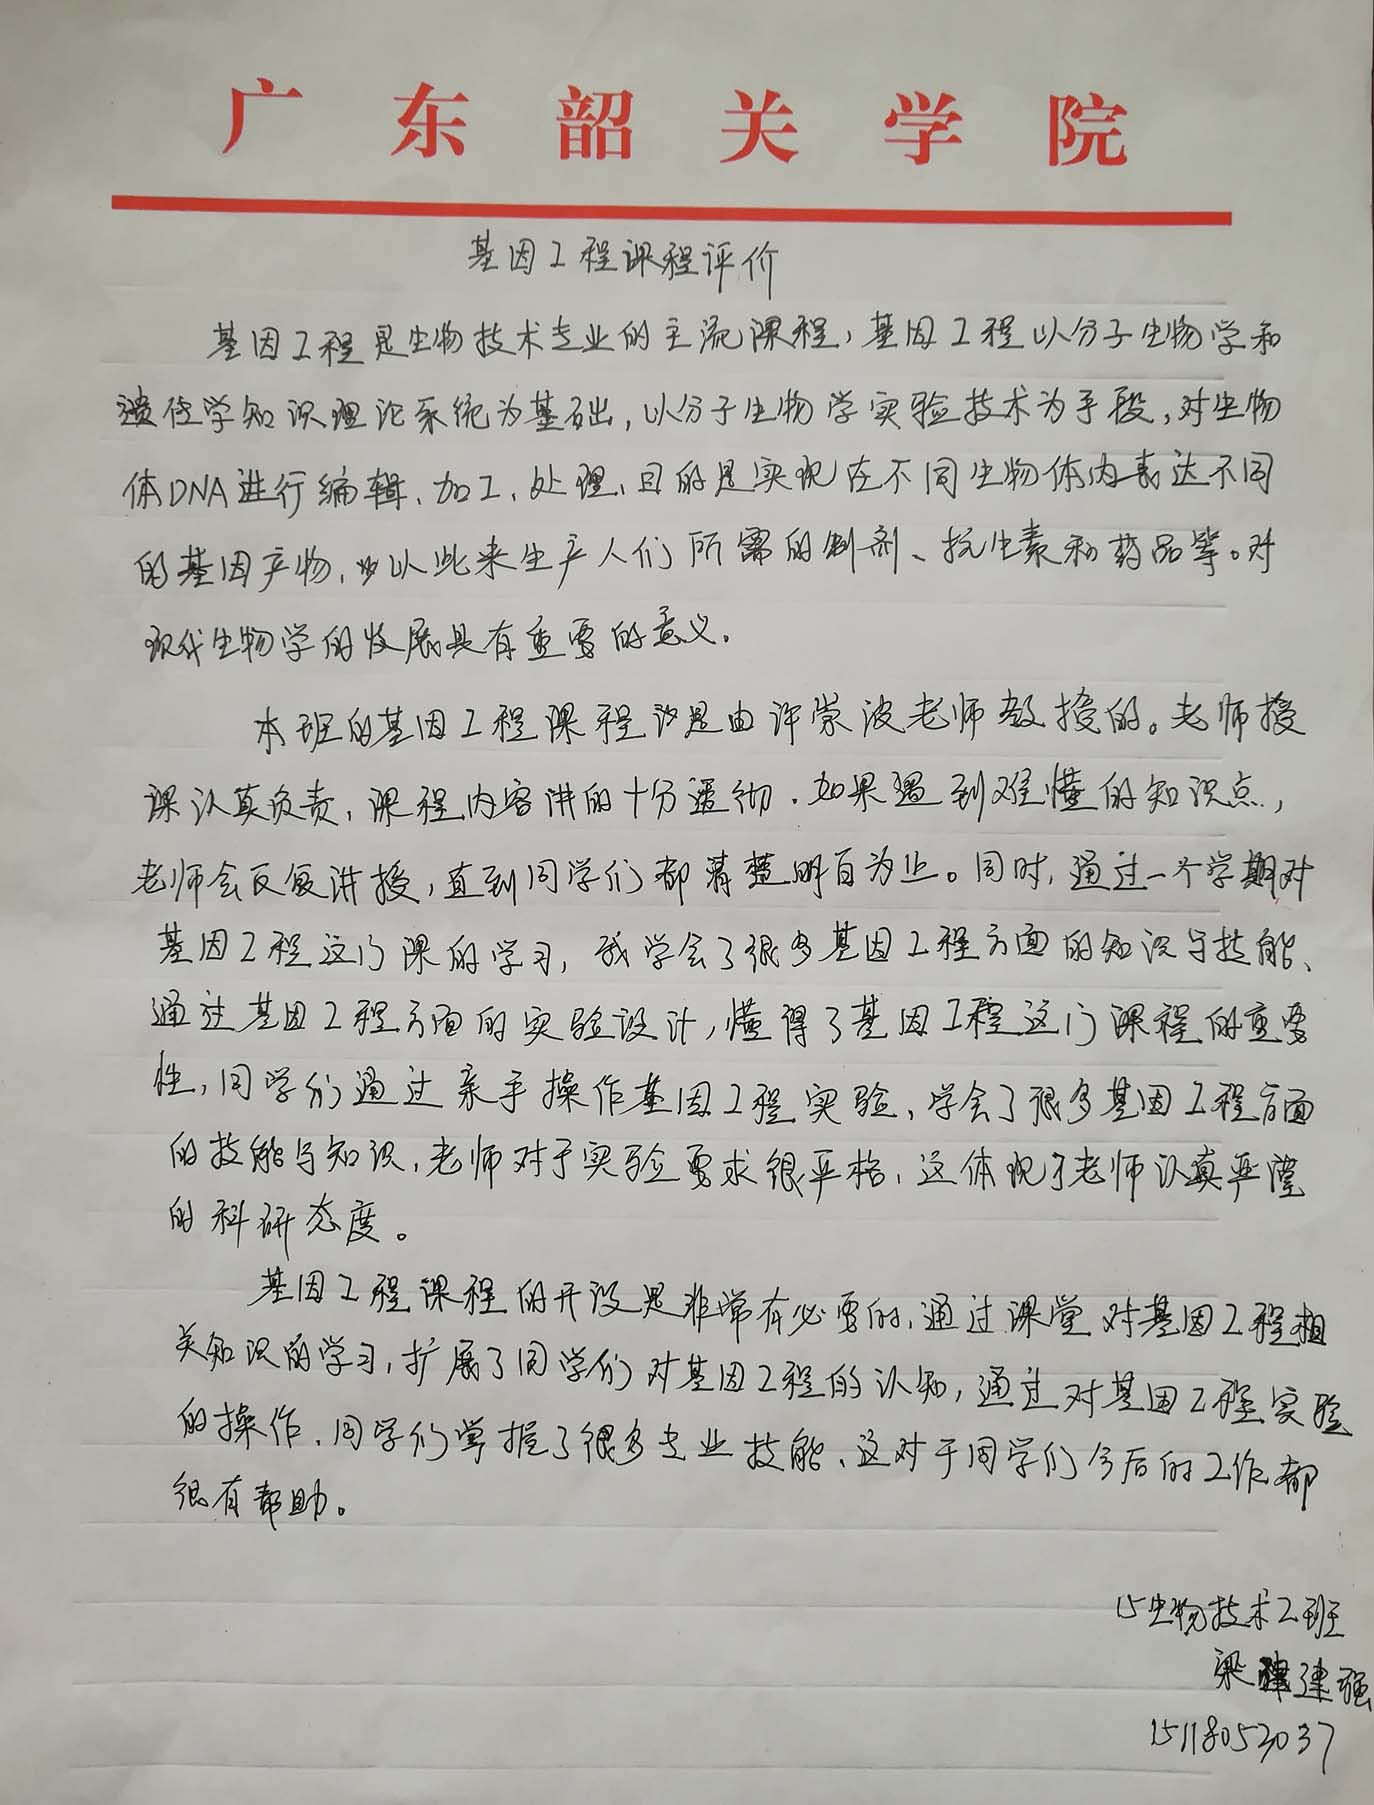 广东韶关学院
基因工程课程评价
基因工程是生物技术专业的主流课程，基因工程以分子生物学和
遗传学知识理论系统为基础，以分子生物学实验技术为手段，对生物
体DNA进行编辑、加工、处理，目的是实现在不同生物体内表达不同
的基因产物，以此来生产人们所需的制剂、抗生素和药品等。对
现代生物学的发展具有重要的意义．
本班的基因工程课程是由许崇波老师教授的。老师授
课认真负责，课程内容讲的十分透彻．如果遇到难懂的知识点，
老师会反复讲授，直到同学们都清楚明白为止。同时，通过一个学期对
基因工程这门课的学习，我学会了很多基因工程方面的知识与技能、
通过基因工程方面的实验设计，懂得了基因工程这门课程的重要
性，同学们通过亲手操作基因工程实验、学会了很多基因工程方面
的技能与知识，老师对于实验要求很严格，这体现了老师认真严谨
的科研态度。
基因工程课程的开设是非常有必要的，通过课堂对基因工程相
关知识的学习，扩展了同学们对基因工程的认知，通过对基因工程实验
的操作、同学们掌握了很多专业技能、这对于同学们今后的工作都
很有帮助。
15生物技术2班
梁建强
15118052037